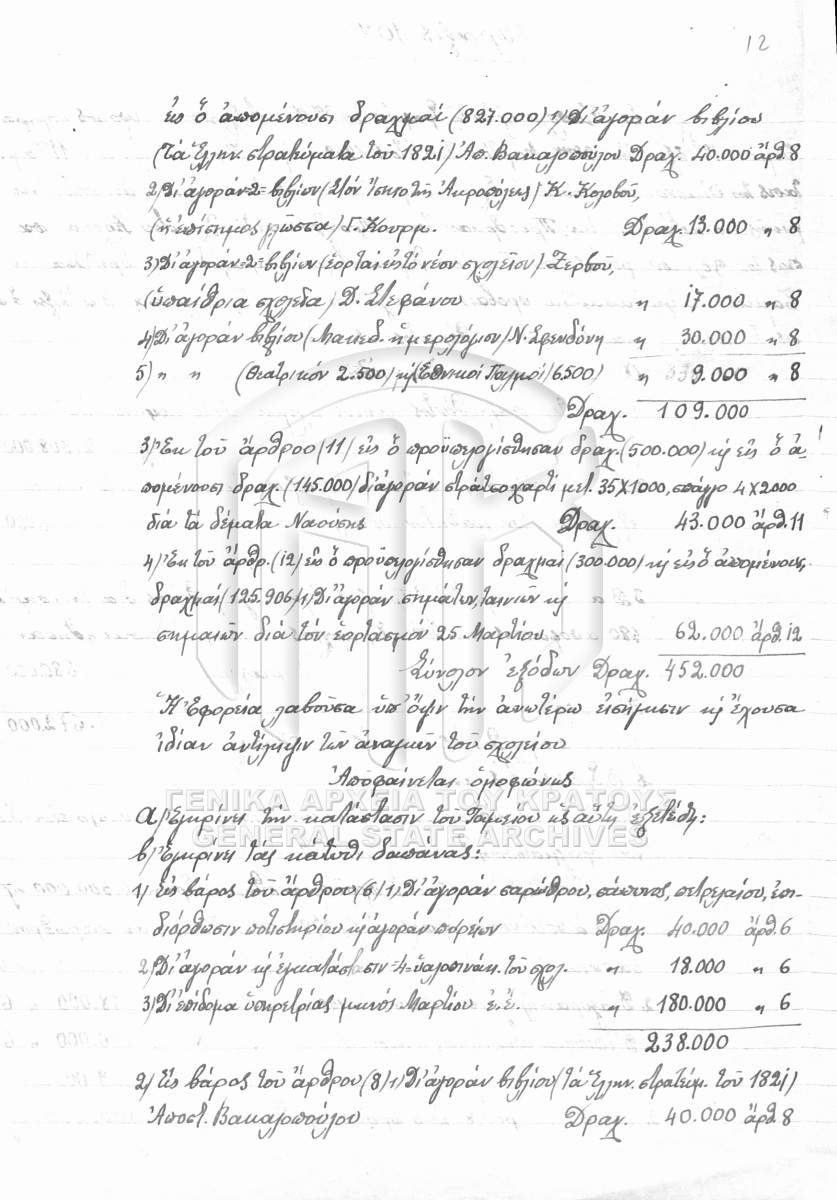 12
εἰς ὃ ἀπομένουσι δραχμαί (827.000) 1) Δι' ἀγοράν βιβλίου
(Τά Ἑλλην. στρατεύματα τοῦ 1821) Ἀπ. Βακαλοπούλου Δραχ. 40.000 ἄρθ. 8
2) Δι' ἀγοράν =2= βιβλίων (Στόν ἴσκιο τῆς Ἀκροπόλεως) Κ. Κολοβοῦ,
(ἡ ἐπίσημος γλῶσσα) Γ. Κουρμ. Δραχ. 13.000 " 8
3) Δι' ἀγοράν =2= βιβλίων (ἑορταί εἰς τό νέον σχολεῖον) Ζερβοῦ,
(ὑπαίθρια σχολεῖα) Δ. Στεφάνου " 17.000 " 8
4) Δι' ἀγοράν βιβλίου (Μακεδ. ἡμερολόγιον) Ν. Σφενδόνη " 30.000 " 8
5) " " (Θεατρικόν 2.500) κ' (Ἐθνικοί Παλμοί) 6500) " 9.000 " 8
Δραχ. 109.000
3) Ἐκ τοῦ ἄρθρου (11) εἰς ὃ προϋπελογίσθησαν δραχ. (500.000) κ' εἰς ὃ ἀ-
πομένουσι δραχ. (145.000) δι' ἀγοράν στρατσόχαρτ. μετ. 35Χ1000, σπάγγο 4Χ2000
διά τά δέματα Ναούσης Δραχ. 43.000 ἄρθ. 11
4) Ἐκ τοῦ ἄρθρ. (12) εἰς ὃ προϋπελογίσθησαν δραχμαί (300.000) κ' εἰς ὃ ἀπομένουσι,
δραχμαί (125.906) 1) Δι' ἀγοράν σημάτων, ταινιῶν κ'
σημαιῶν διά τόν ἑορτασμόν 25 Μαρτίου 62.000 ἄρθ. 12
Σύνολον ἐξόδων Δραχ. 452.000
Ἡ Ἐφορεία λαβοῦσα ὑπ' ὄψιν τήν ἀνωτέρω εἰσήγησιν κ' ἔχουσα
ἰδίαν ἀντίληψιν τῶν ἀναγκῶν τοῦ σχολείου
Ἀποφαίνεται ὁμοφώνως
ΓΕΝΙΚΑ ΑΡΧΕΙΑ ΤΟΥ ΚΡΑΤΟΥΣ
α) Ἐγκρίνει τήν κατάστασιν τοῦ Ταμείου ὡς αὕτη ἐξετέθη:
GENERAL STATE ARCHIVES
β) Ἐγκρίνει τάς κάτωθι δαπάνας:
1) Εἰς βάρος τοῦ ἄρθρου (6) 1) Δι' ἀγοράν σαρώθρου, σάπωνος, πετρελαίου, ἐπι-
διόρθωσιν ποτιστηρίου κ' ἀγοράν πυρείων Δραχ. 40.000 ἄρθ. 6
2) Δι' ἀγοράν κ' ἐγκατάστασιν =4= ὑαλοπινάκ. τοῦ σχολ. " 18.000 " 6
3) Δι' ἐπίδομα ὑπηρετρίας μηνός Μαρτίου ἐ.ἔ. " 180.000 " 6
238.000
2) Εἰς βάρος τοῦ ἄρθρου (8) 1) Δι' ἀγοράν βιβλίου (τά Ἑλλην. στρατεύμ. τοῦ 1821)
Ἀποστ. Βακαλοπούλου Δραχ. 40.000 ἄρθ. 8